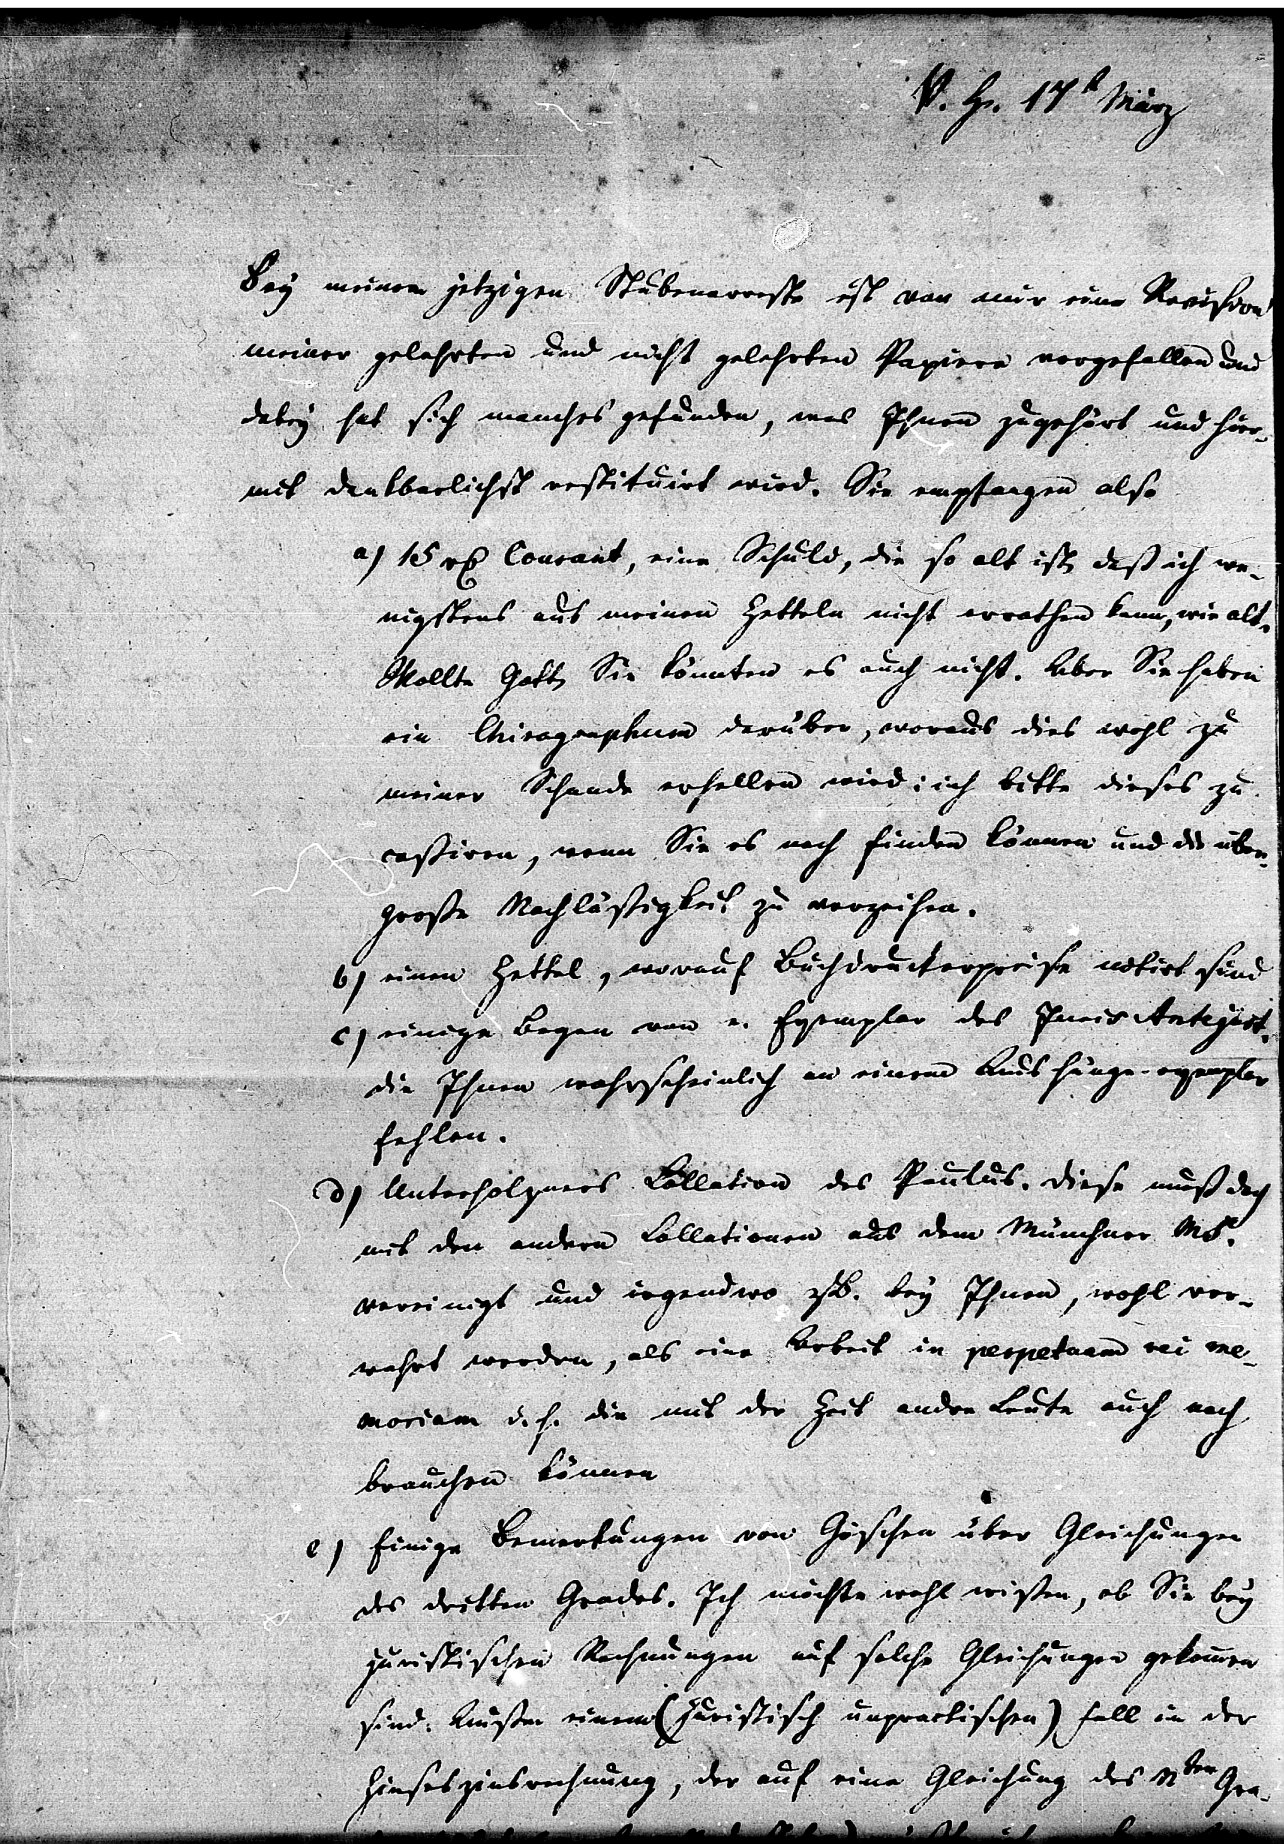 V. H. 17t März
Bey meinem jetzigen Stubenarreste ist von mir eine Revision
meiner gelehrten und nicht gelehrten Papiere vorgefallen und
dabey hat sich manches gefunden, was Ihnen zugehört und hier-
mit dankbarlichst restituirt wird. Sie empfangen also
a) 15 rth Courant, eine Schuld, die so alt ist, daß ich we-
nigstens aus meinen Zetteln nicht errathen kann, wie alt.
Wollte Gott, Sie könnten es auch nicht. Aber Sie haben
ein Chirographum darüber, woraus dies wohl zu
meiner Schande erhellen wird; ich bitte dieses zu
cassiren, wenn Sie es noch finden können und die über-
große Nachläßigkeit zu verzeihen.
b) einen Zettel, worauf Buchdruckerpreise notirt sind
c) einige Bogen von e. Exemplar des Juris Antejust.
die Ihnen wahrscheinlich an einem Aushänge-exemplar
fehlen.
d) Unterholzners Collation des Paulus. Diese muß doch
mit den andern Collationen aus dem Münchner Mst.
vereinigt und irgendwo zB. bey Ihnen, wohl ver-
wahrt werden, als eine Arbeit in perpetuam rei me-
moriam d. h. die mit der Zeit andre Leute auch noch
brauchen können
e) Einige Bemerkungen von Göschen über Gleichungen
des dritten Grades. Ich möchte wohl wißen, ob Sie bey
juristischen Rechnungen auf solche Gleichungen gekommen
sind. Außer einem (juristisch unpractischen) Fall in der
Zinseszinsrechnung, der auf eine Gleichung des nten Gra-